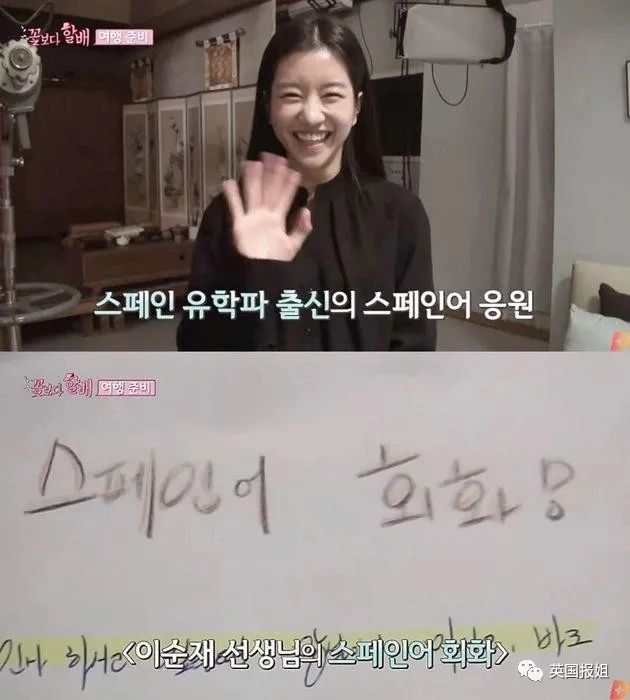 꽃보다 할배 여행 준비
스페인 유학파 출신의 스페인어 응원
꽃보다 할배 여행 준비
스페인어 회화
<이순재 선생님의 스페인어 회화>
바로
英国报姐